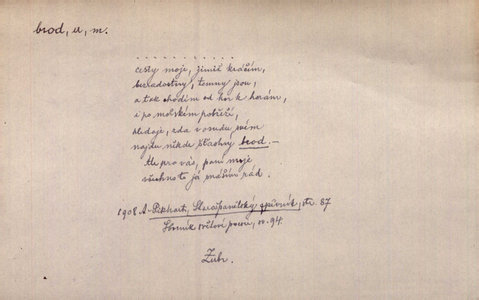 brod, u, m.
. . . . . . . . . . . . . . . .
cesty moje, jimiž kráčím,
bezradostny, temny jsou,
a tak chodím od hor k horám,
i po mořském pobřeží,
hledaje, zda v osudu svém
najdu někde šťastný brod. —
Ale pro vás, paní moje
všechno to já snáším rád.
1908 A. Pikhart, Starošpanělský zpěvník, str. 87
Sborník světové poesie, sv. 94.
Zubr.